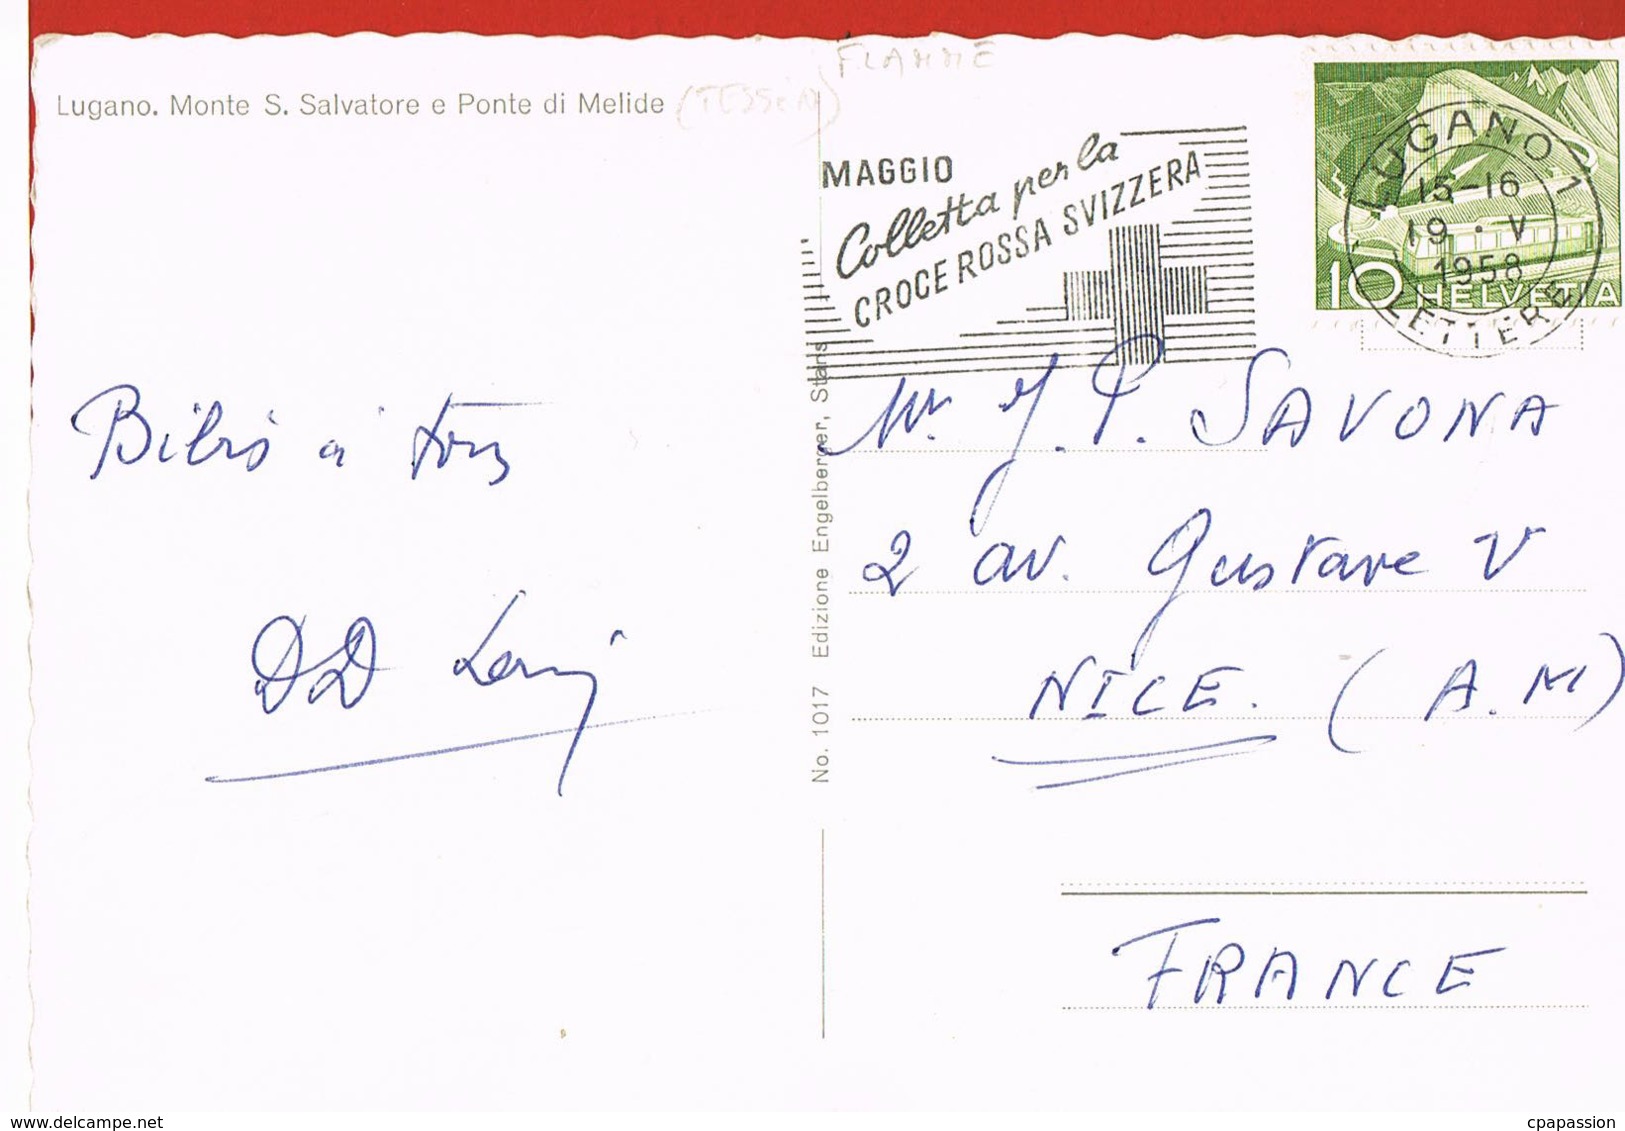 FLAMME
Lugano. Monte S. Salvatore e Ponte di Melide (TESSIN)
MAGGIO
Colletta per la
CROCE ROSSA SVIZZERA
LUGANO 1
15-16
19 · V
1958
LETTERE
10 HELVETIA
à tous
DD
Mr. J. P. SAVONA
2 av. Gustave V
NICE. (A.M)
FRANCE
No. 1017 Edizione Engelberger, Stans
delcampe.net
cpapassion